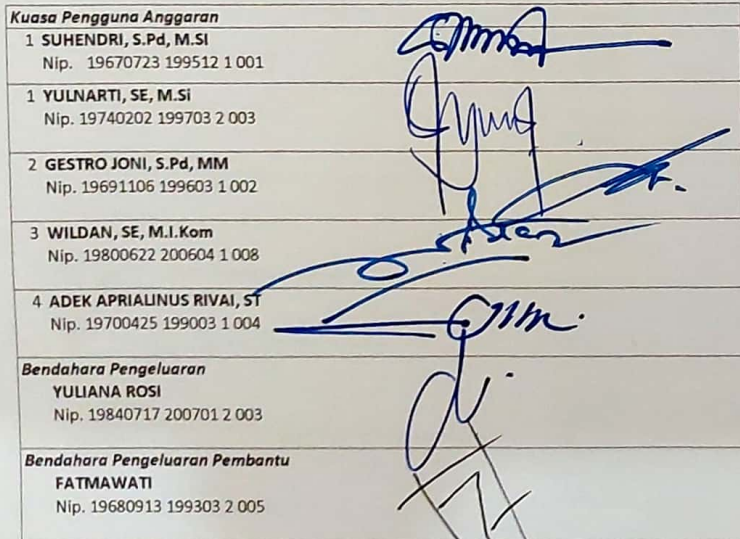 Kuasa Pengguna Anggaran
1 SUHENDRI, S.Pd, M.SI
Nip. 19670723 199512 1 001
1 YULNARTI, SE, M.Si
Nip. 19740202 199703 2 003
2 GESTRO JONI, S.Pd, MM
Nip. 19691106 199603 1 002
3 WILDAN, SE, M.I.Kom
Nip. 19800622 200604 1 008
4 ADEK APRIALINUS RIVAI, ST
Nip. 19700425 199003 1 004
Bendahara Pengeluaran
YULIANA ROSI
Nip. 19840717 200701 2 003
Bendahara Pengeluaran Pembantu
FATMAWATI
Nip. 19680913 199303 2 005